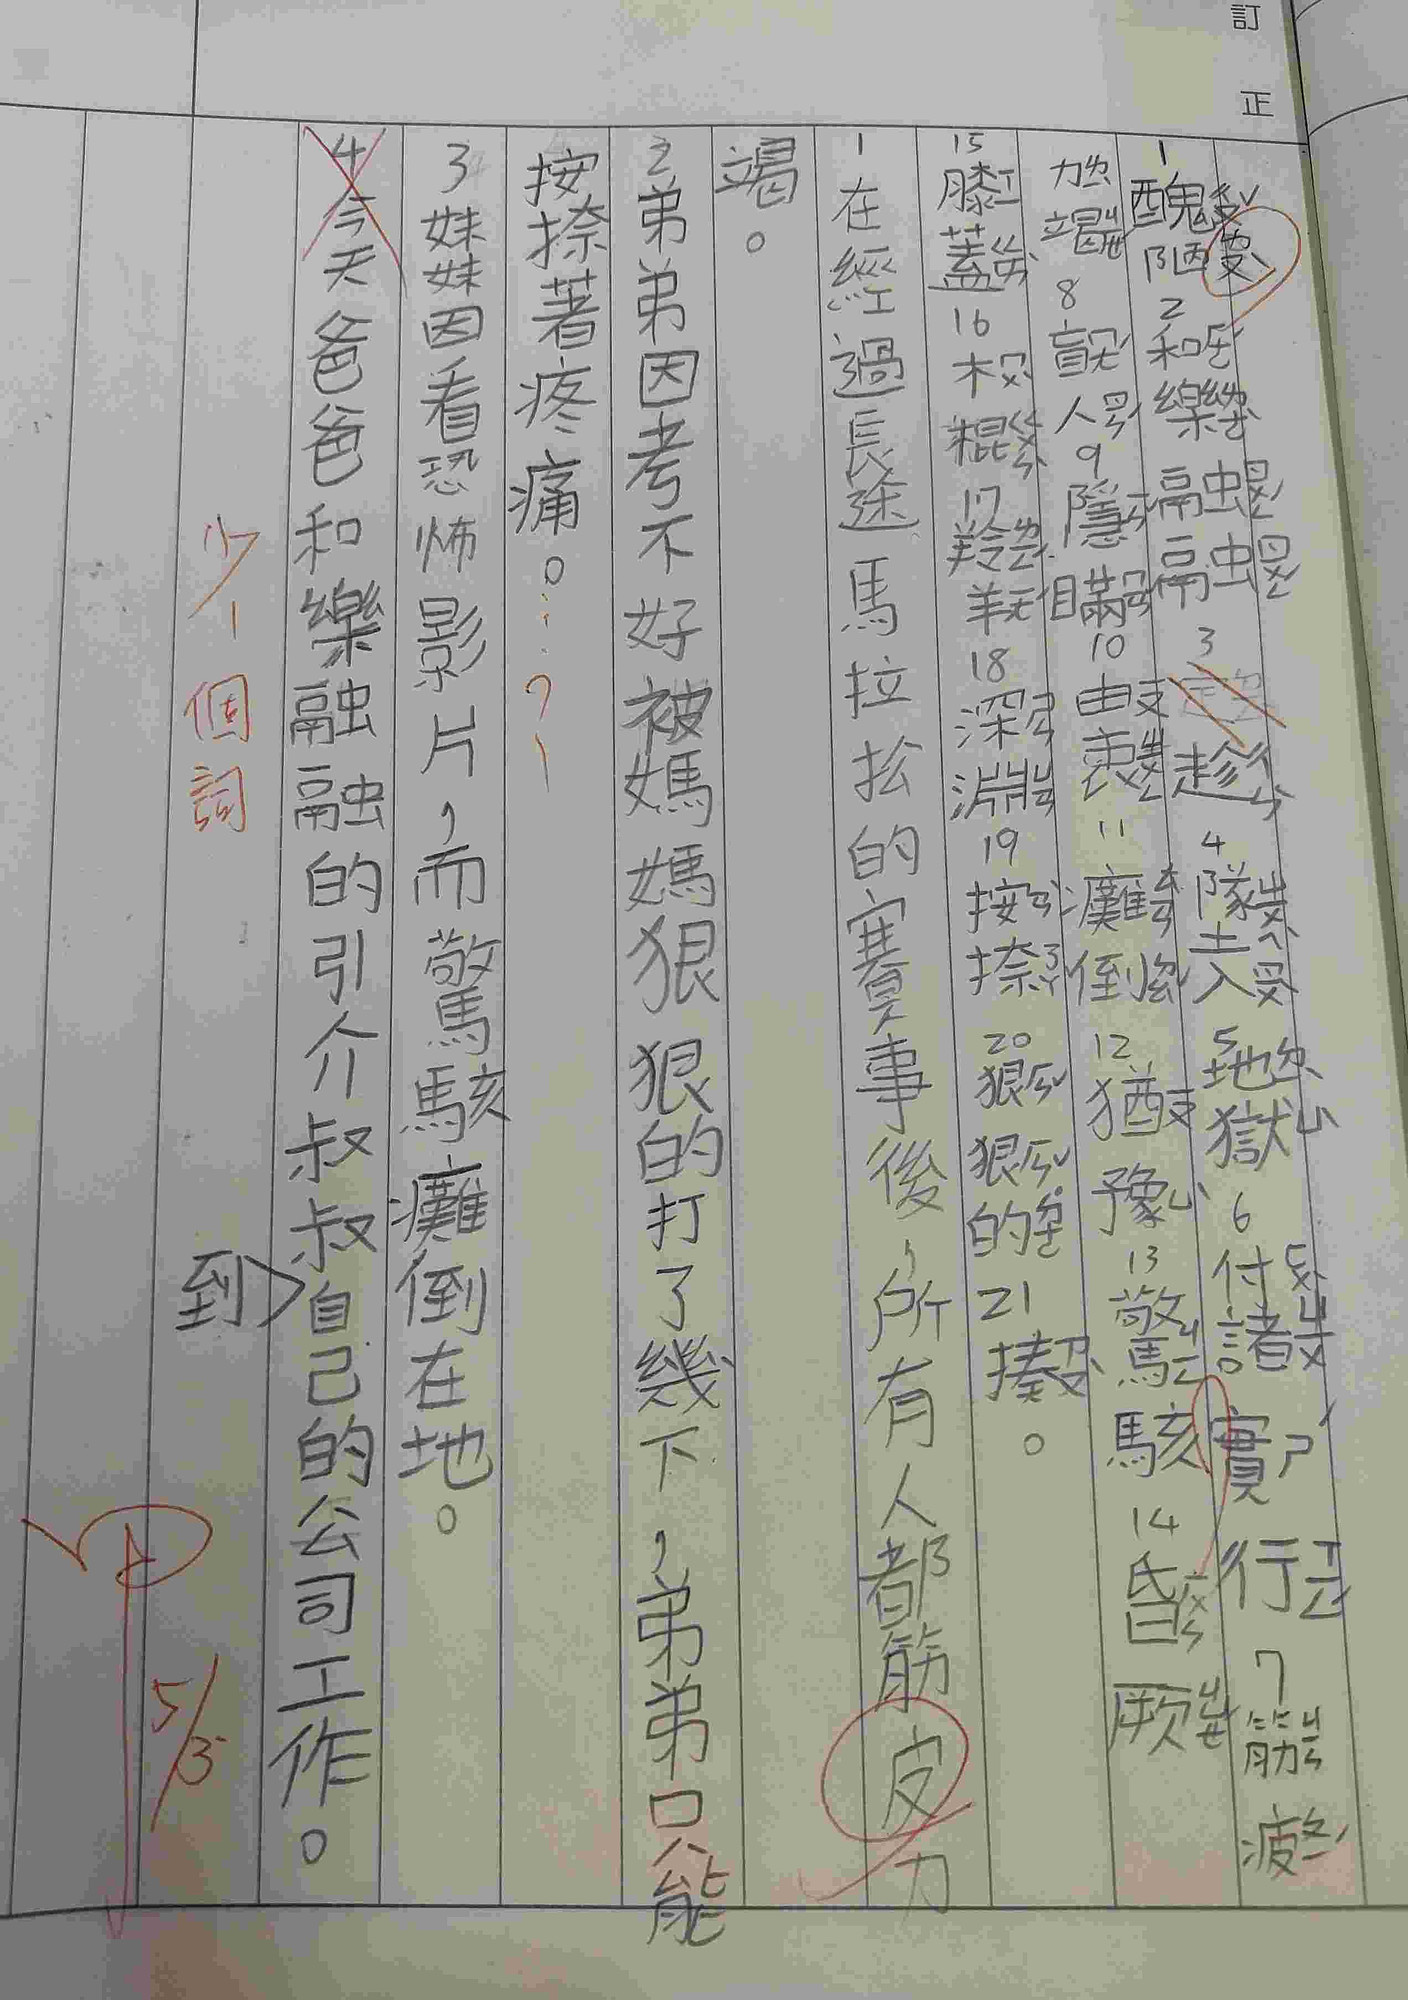 訂正
1醜陋2和樂融融3趁4墜入5地獄6付諸實行7筋疲
力竭8盲人9隱瞞10由衷11癱倒12猶豫13驚駭14昏厥
15膝蓋16木棍17羚羊18深淵19按捺20狠狠的21揍。
1在經過長途馬拉松的賽事後,所有人都筋皮力
竭。
2弟弟因考不好被媽媽狠狠的打了幾下,弟弟只能
按捺著疼痛。
3妹妹因看恐怖影片,而驚駭癱倒在地。
4今天爸爸和樂融融的引介叔叔到自己的公司工作。
少1個詞
甲
5/3